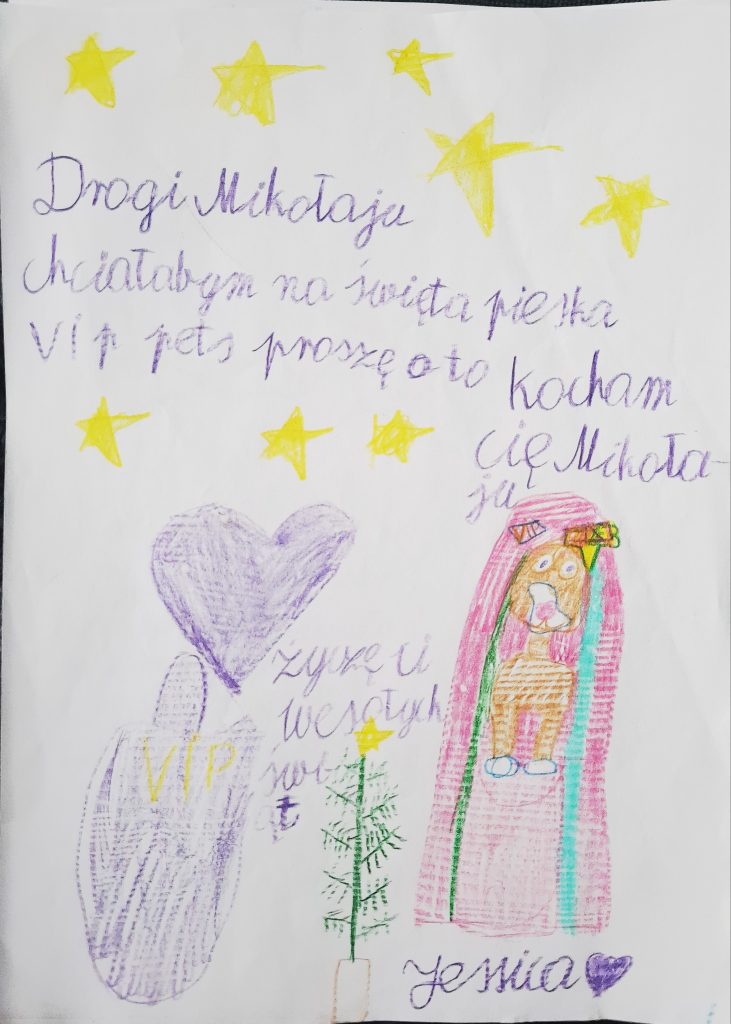 Drogi Mikołaju
chciałabym na święta pieska
Vip pets proszę o to kocham
cię Mikoła-
ju
VIP
życzę Ci
wesołych
świ
ąt
VIP
Jessica